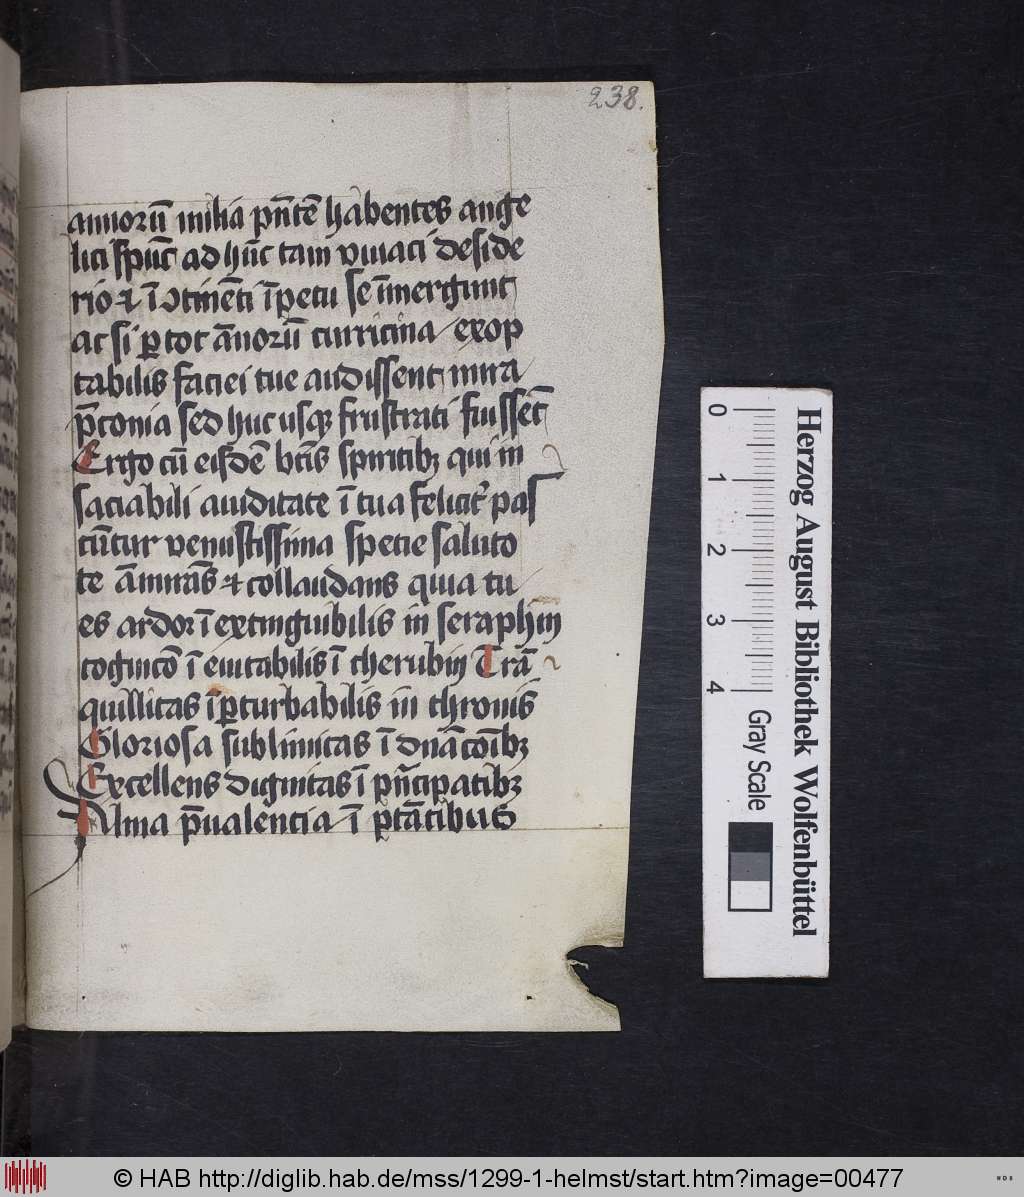 238.
annorū milia pn̄tē habentes ange
lici spūc ad hūc tam viuaci deside
rio et ī ↄtinēti īpetu se īmergunt
ac si ꝑ tot ānorū curricina exop
tabilis faciei tue audissent mira
p̄conia sed huc usqꝫ frustrati fuissēt
Ergo cū eisdē bt̄is spiritibꝫ qui in
saciabili auiditate ī tua felicit᷑ pas
cūtur venustissima specie saluto
te āmirās et collaudans quia tu
es ardor īextinguibilis in seraphin
cognicō ī euitabilis ī cherubin Trā
quillitas īꝑturbabilis in thronis
Gloriosa sublimitas ī dnācōībꝫ
Excellens dignitas ī pn̄cipatibꝫ
Alma p̄ualencia ī ptātibus
Herzog August Bibliothek Wolfenbüttel
0 1 2 3 4
Gray Scale
© HAB http://diglib.hab.de/mss/1299-1-helmst/start.htm?image=00477